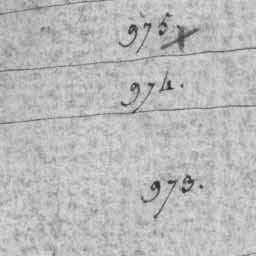 975
974.
973.